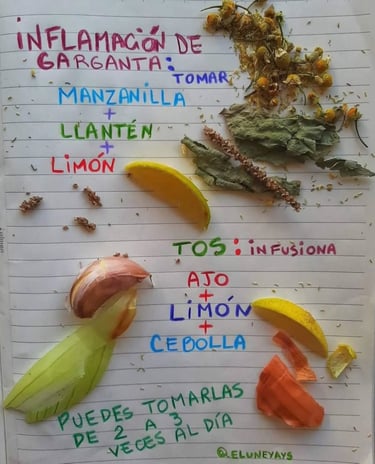 INFLAMACIÓN DE
GARGANTA:
TOMAR
MANZANILLA
+
LLANTÉN
+
LIMÓN
TOS: INFUSIONA
AJO
+
LIMÓN
+
CEBOLLA
PUEDES TOMARLAS
DE 2 A 3
VECES AL DÍA
@ELUNEYAYS